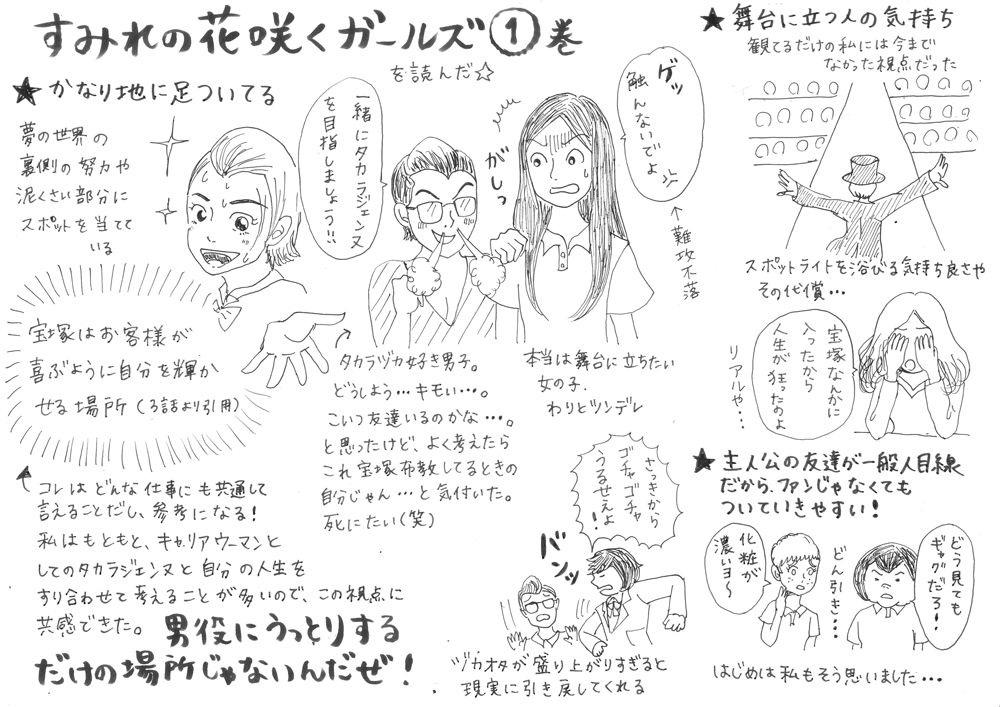 すみれの花咲くガールズ①巻
を読んだ☆
★かなり地に足ついてる
夢の世界の
裏側の努力や
泥くさい部分に
スポットを当てて
いる
宝塚はお客様が
喜ぶように自分を輝か
せる場所(3話より引用)
コレはどんな仕事にも共通して
言えることだし、参考になる!
私はもともと、キャリアウーマンと
してのタカラジェンヌと自分の人生を
すり合わせて考えることが多いので、この視点に
共感できた。男役にうっとりする
だけの場所じゃないんだぜ!
一緒にタカラジェンヌ
を目指しましょう!!!
がしっ
ゲッ
触んないでよ
↑難攻不落
タカラヅカ好き男子。
どうしよう…キモい…。
こいつ友達いるのかな…。
と思ったけど、よく考えたら
これ宝塚布教してるときの
自分じゃん…と気付いた。
死にたい(笑)
本当は舞台に立ちたい
女の子.
わりとツンデレ
さっきから
ゴチャゴチャ
うるせえよ
!
バンッ
ヅカオタが盛り上がりすぎると
現実に引き戻してくれる
★舞台に立つ人の気持ち
観てるだけの私には今まで
なかった視点だった
スポットライトを浴びる気持ち良さや
その代償…
宝塚なんかに
入ったから
人生が狂ったのよ
リアルや…
★主人公の友達が一般人目線
だから、ファンじゃなくても
ついていきやすい!
どう見ても
ギャグだろ!
どん引き…
化粧が
濃いヨ〜
はじめは私もそう思いました…